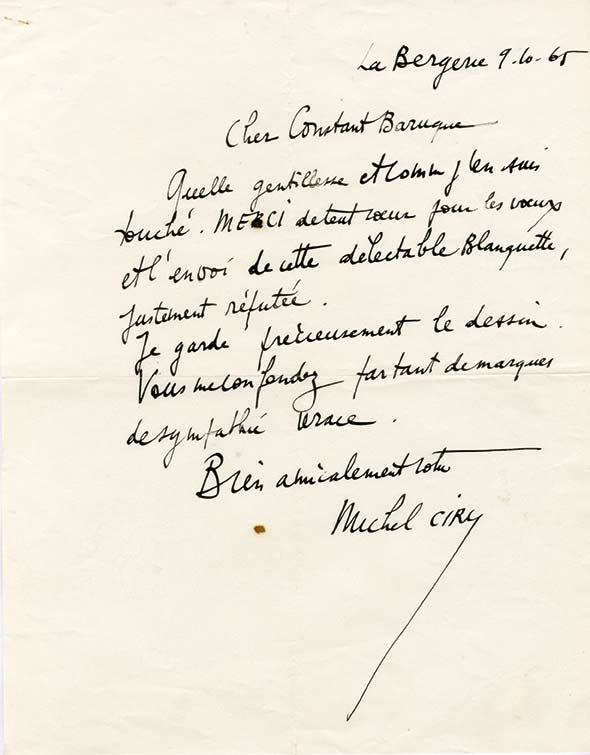 La Bergerie 9.10.65
Cher Constant Baruque
Quelle gentillesse et comme j'en suis
touché. MERCI de tout cœur pour les vœux
et l'envoi de cette délectable Blanquette,
justement réputée.
Je garde précieusement le dessin.
Vous me confondez par tant de marques
de sympathie vraie.
Bien amicalement votre
Michel CIRY